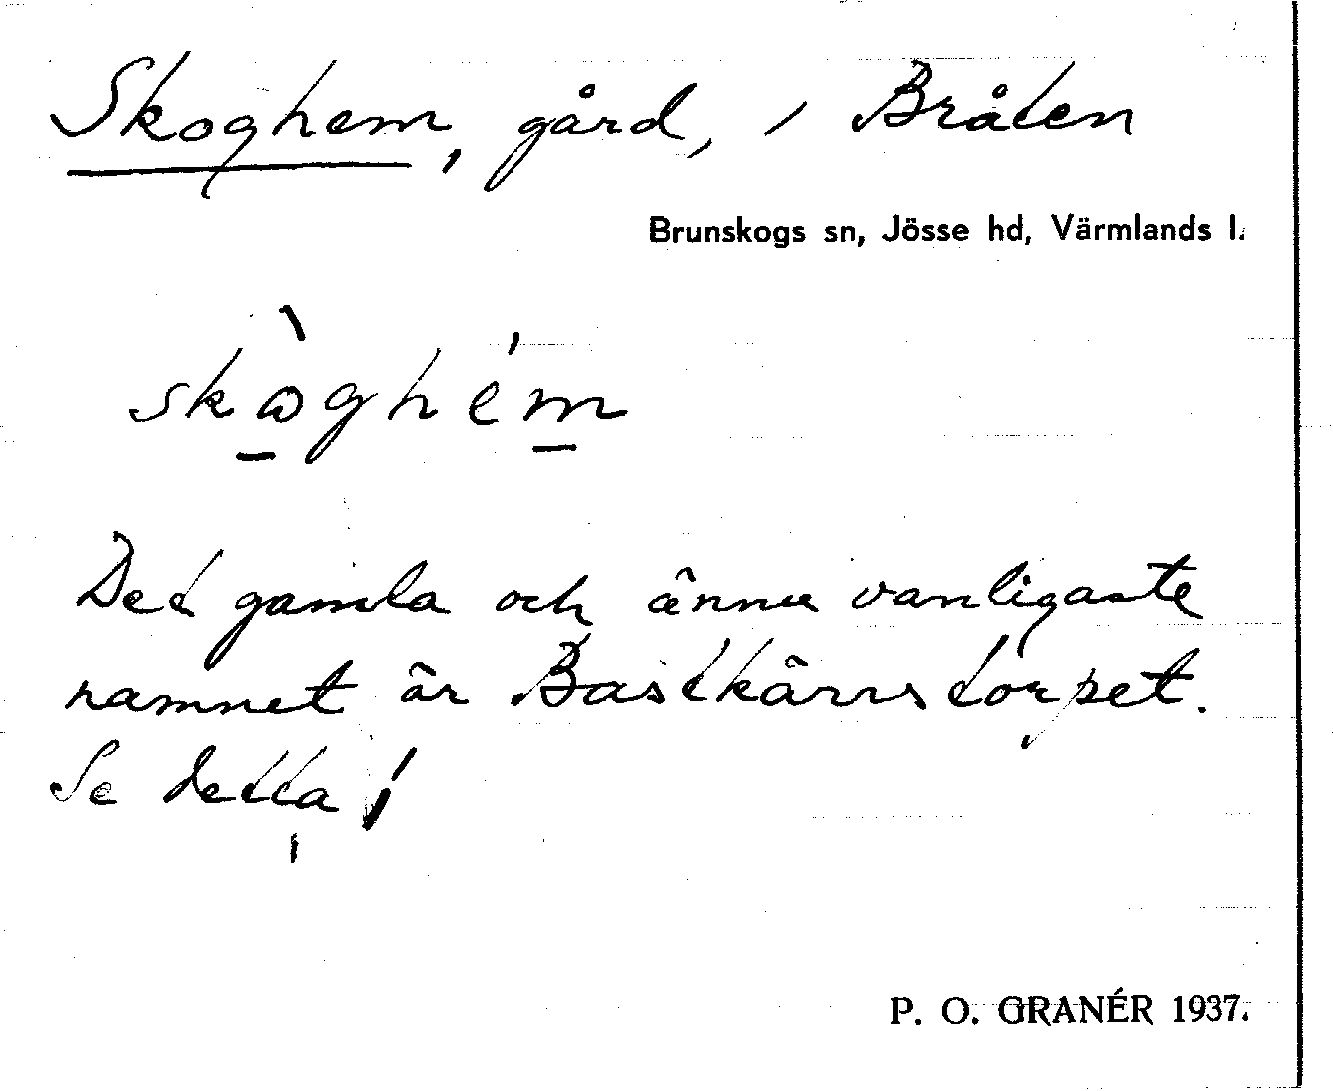 Skoghem, gård, i Bråten
Brunskogs sn, Jösse hd, Värmlands l.
skòghém
Det gamla och ännu vanligaste
namnet är Bastkärnstorpet.
Se detta!
P. O. GRANÉR 1937.